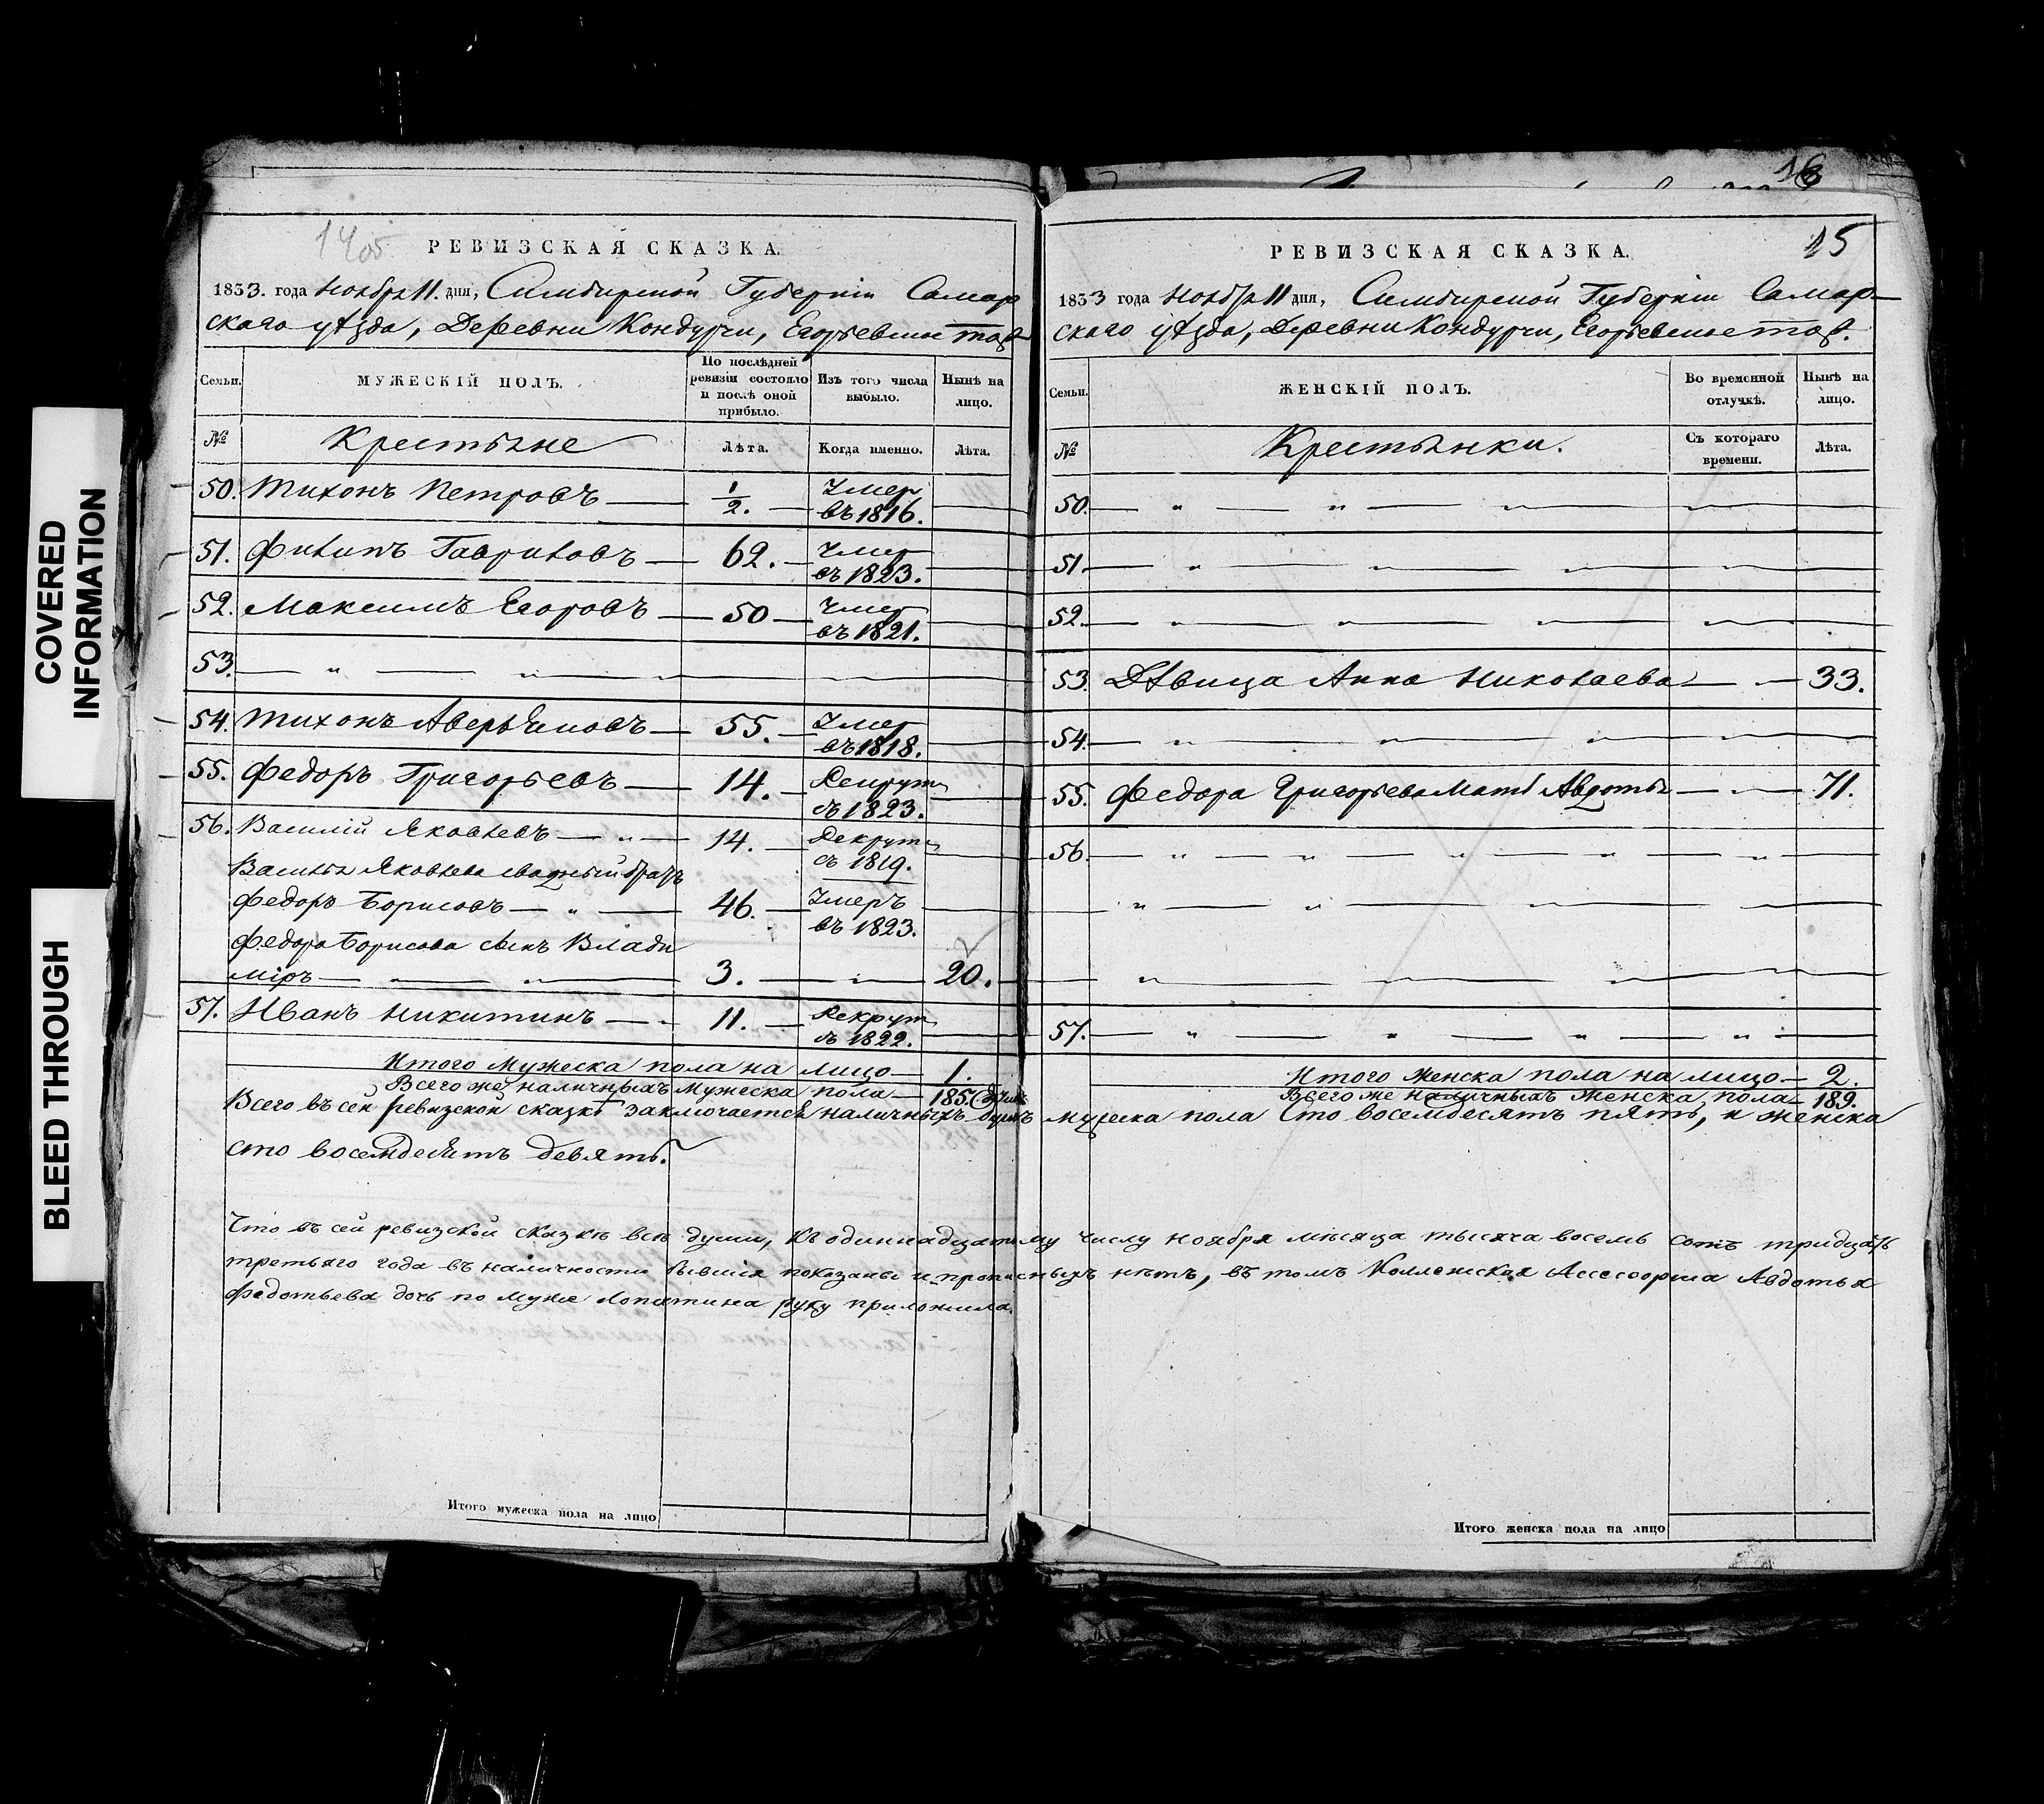 COVERED
INFORMATION
BLEED THROUGH
14 об.
РЕВИЗСКАЯ СКАЗКА.
1833. года Ноября 11. дня, Симбирской Губерніи Самар
скаго уѣзда, Деревни Кондурчи, Егорьевское тож
Семьи.
МУЖЕСКІЙ ПОЛЪ.
По послѣдней
ревизіи состояло
и послѣ оной
прибыло.
Изъ того числа
выбыло.
Нынѣ на
лицо.
№
Крестьяне
Лѣта.
Когда именно.
Лѣта.
50. Тихонъ Петровъ — 1/2. — Умер
въ 1816.
51. Филипъ Гавриловъ — 62. — Умер
въ 1823.
52. Максимъ Егоровъ — 50 — Умер
въ 1821.
53. — " — " —
54. Тихонъ Аверьяновъ — 55. — Умер
въ 1818.
55. Федоръ Григорьевъ — 14. — Рекрут
въ 1823.
56. Василій Яковлевъ — " — 14. — Рекрут
съ 1819.
Василья Яковлева сводный братъ
Федоръ Борисовъ — " — 46. — Умеръ
въ 1823.
Федора Борисова сынъ Влади
міръ — " — " — 3. — " — 20.
57. Иванъ Никитинъ — 11. — Рекрут
въ 1822.
Итого Мужеска пола на лицо — 1.
Всего же наличныхъ Мужеска пола — 185.
Всего въ сей ревизской сказкѣ заключается наличныхъ душъ
сто восемдесятъ девять.
Что въ сей ревизской сказкѣ всѣ души, къ одиннадцатому числу ноября мѣсяца тысяча восемь сотъ тридцать
третьяго года въ наличности бывшія показаны и прописныхъ нѣтъ, въ томъ Коллежская Асессорша Авдотья
Федотьева дочь по мужѣ Лопатина руку приложила.
Итого мужеска пола на лицо
15
РЕВИЗСКАЯ СКАЗКА.
1833 года Ноября 11 дня, Симбирской Губерніи Самар—
скаго уѣзда, Деревни Кондурчи, Егорьевское тож.
Семьи.
ЖЕНСКІЙ ПОЛЪ.
Во временной
отлучкѣ.
Нынѣ на
лицо.
№
Крестьянки.
Съ котораго
времени.
Лѣта.
50. — " — " — " —
51. — " — " — " —
52. — " — " — " —
53. Дѣвица Анна Николаева — " — 33.
54. — " — " — " —
55. Федора Григорьева Мать Авдотья — " — 71.
56. — " — " — " — " — " —
— " — " — " — " —
— " — " — " —
57. — " — " — " — " —
Итого Женска пола на лицо — 2.
Всего же наличныхъ Женска пола — 189.
мужеска пола Сто восемдесятъ пять, и женска
Итого женска пола на лицо